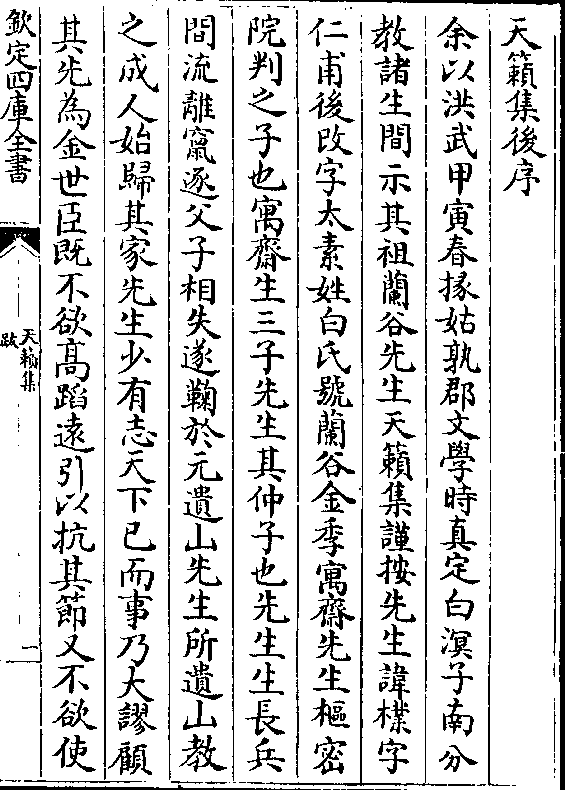 天籟集後序
余以洪武甲寅春掾姑孰郡文學時真定白溟子南分
教諸生間示其祖蘭谷先生天籟集謹按先生諱樸字
仁甫後改字太素姓白氏號蘭谷金季寓齋先生樞密
院判之子也寓齋生三子先生其仲子也先生生長兵
間流離竄逐父子相失遂鞠於元遺山先生所遺山教
之成人始歸其家先生少有志天下已而事乃大謬顧
其先為金世臣既不欲高蹈遠引以抗其節又不欲使
欽定四庫全書
天籟集
跋
一